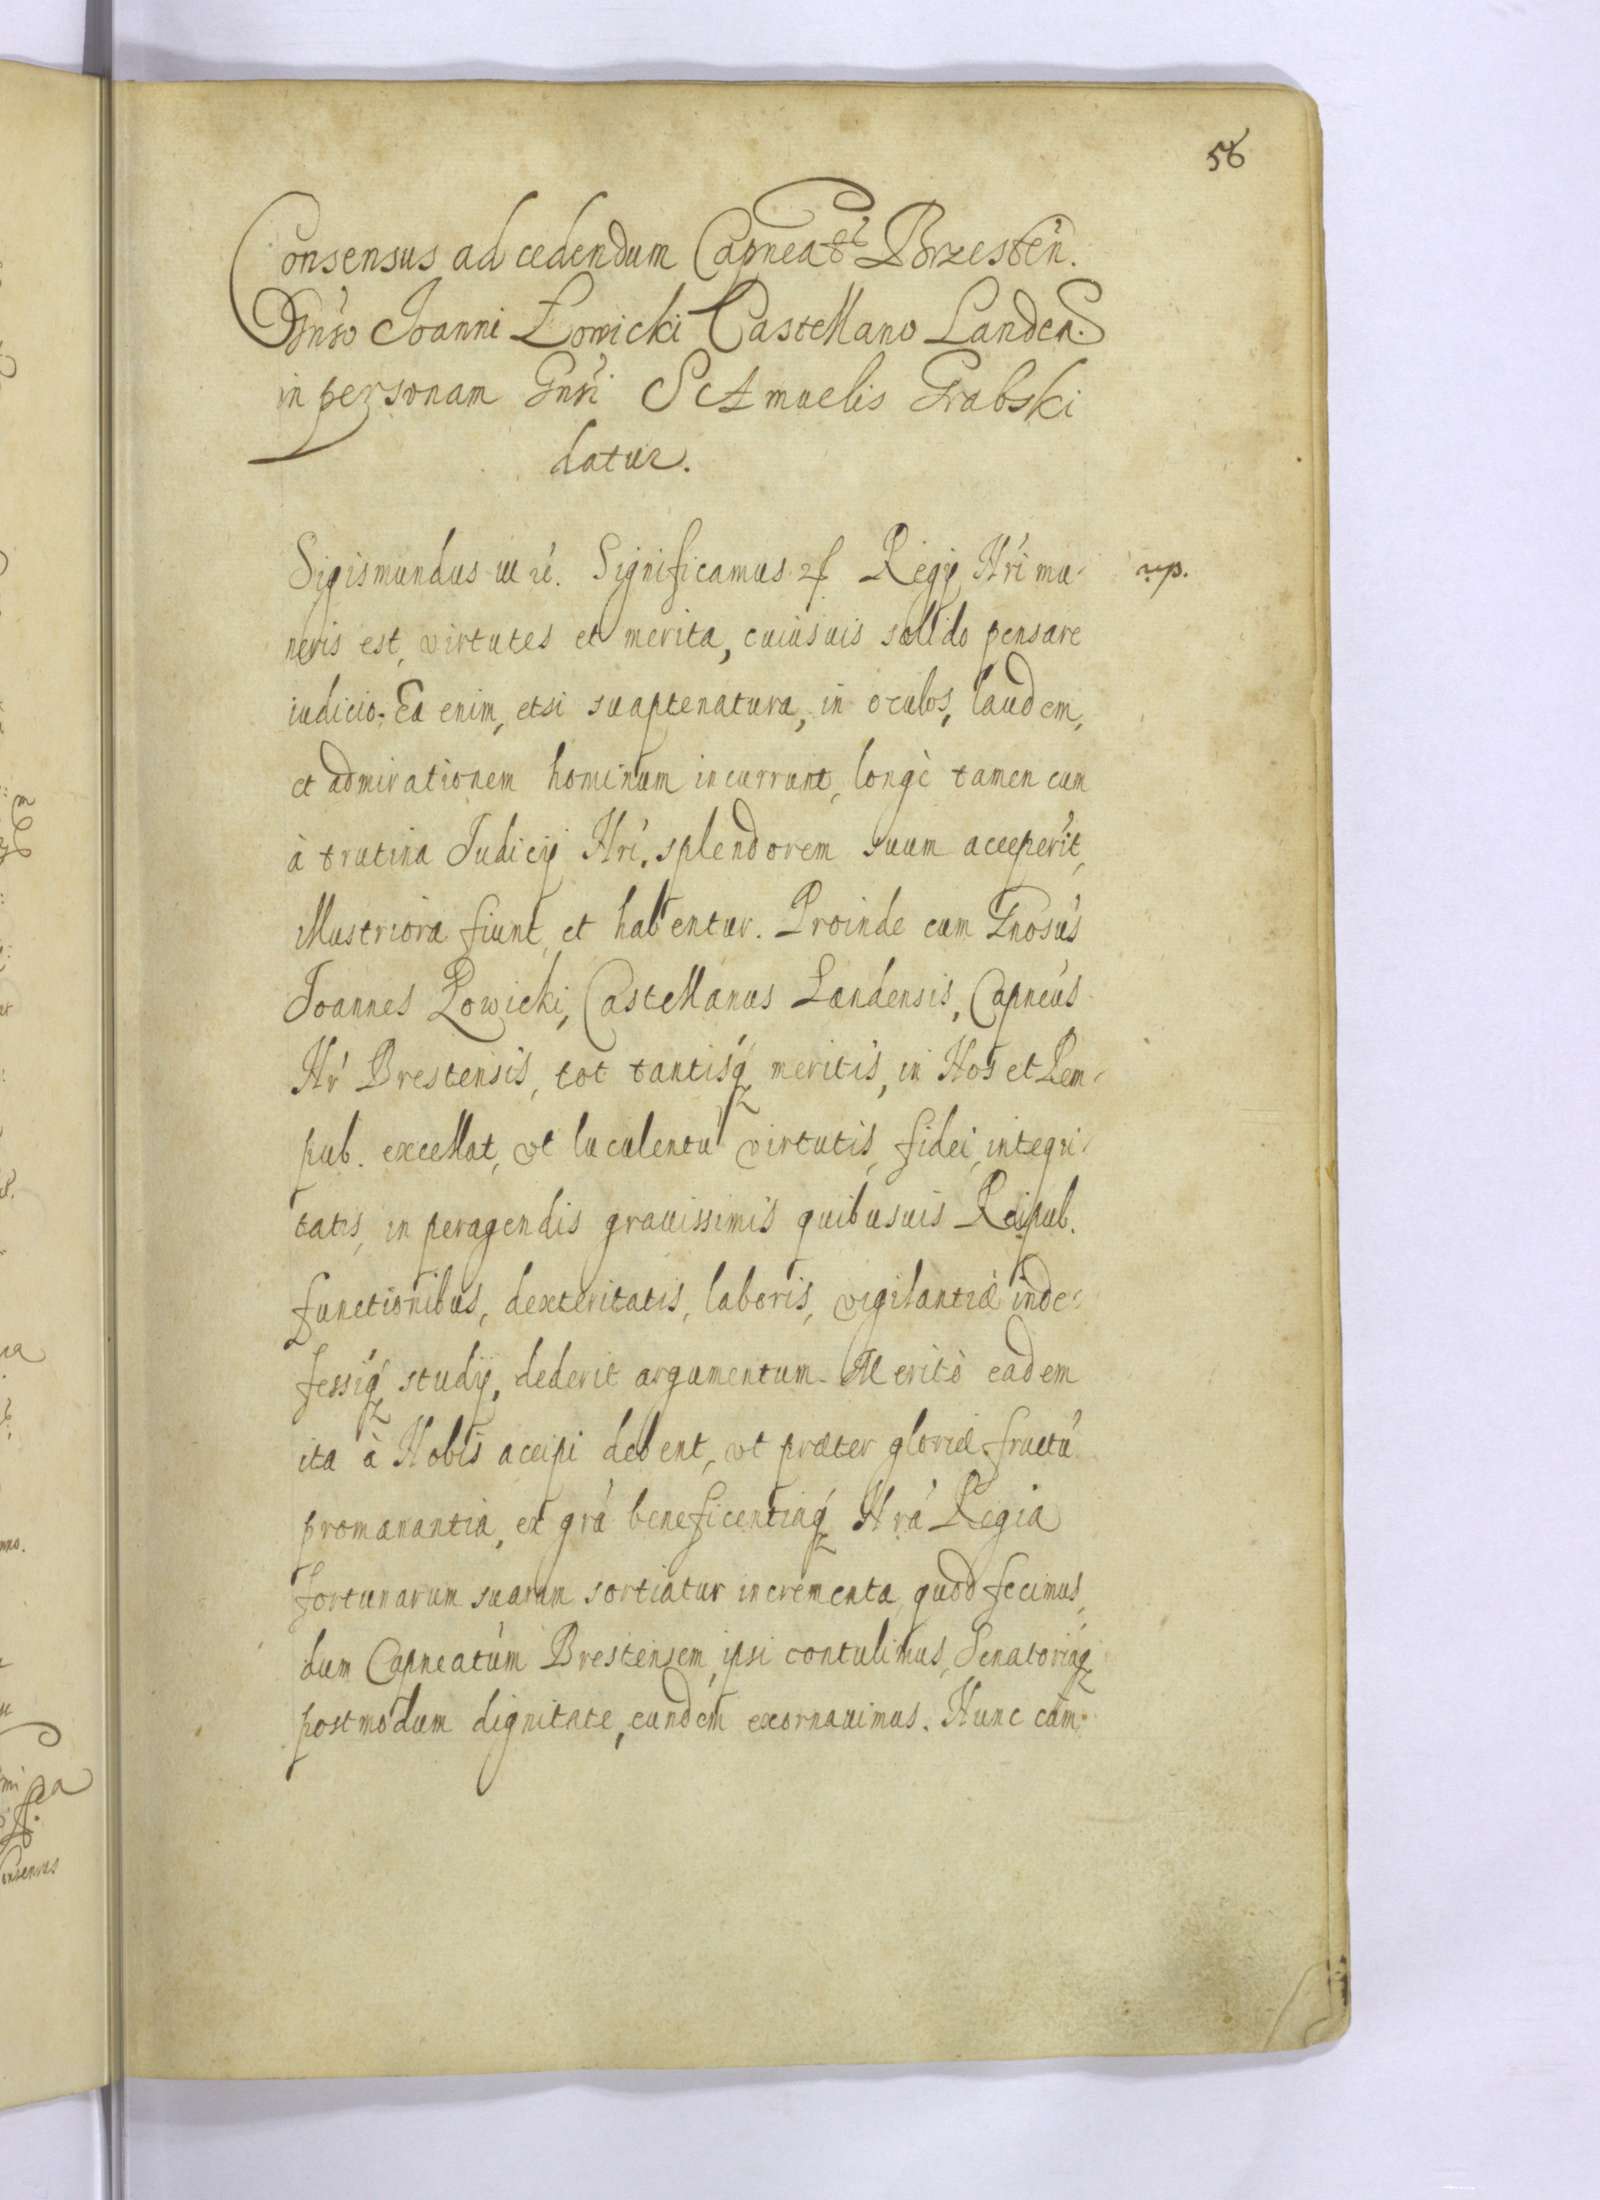 56
Consensus ad cedendum Capneatū Brzesteń.
Gnŕo Joanni Łowicki Castellano Landen.
in personam Gnŕi SAmuelis Grabski
datur.
Sigismundus III Significamus Regij Nŕi mu-
neris est, virtutes et merita, cuiusuis sollido pensare
iudicio. Ea enim, etsi suaptenatura, in oculos, laudem,
et admirationem hominum incurrunt, longè tamen cum
à trutina Judicij Nŕi. splendorem suum acceperit,
illustriora fiunt, et habentur. Proinde cum Gnosús
Joannes Łowicki, Castellanus Landensis, Capneús
Nŕ Brestensis, tot tantisq́ meritis, in Nos et Rem-
pub. excellat, vt luculentú virtutis, fidei, integri-
tatis, in peragendis grauissimis quibusuis Reipub.
functionibus, dexteritatis, laboris, vigilantiæ inde-
fessiq́ studij, dederit argumentum. Meritò eadem
ita à Nobis accipi debent, vt præter gloriæ fructú
promanantia, ex grá beneficentiaq́ Nrá Regia
fortunarum suarum sortiatur incrementa, quod fecimus,
dum Capneatúm Brestensem, ipsi contulimus, Senatoriaq́
postmodum dignitate, eundem exornauimus. Nunc cúm